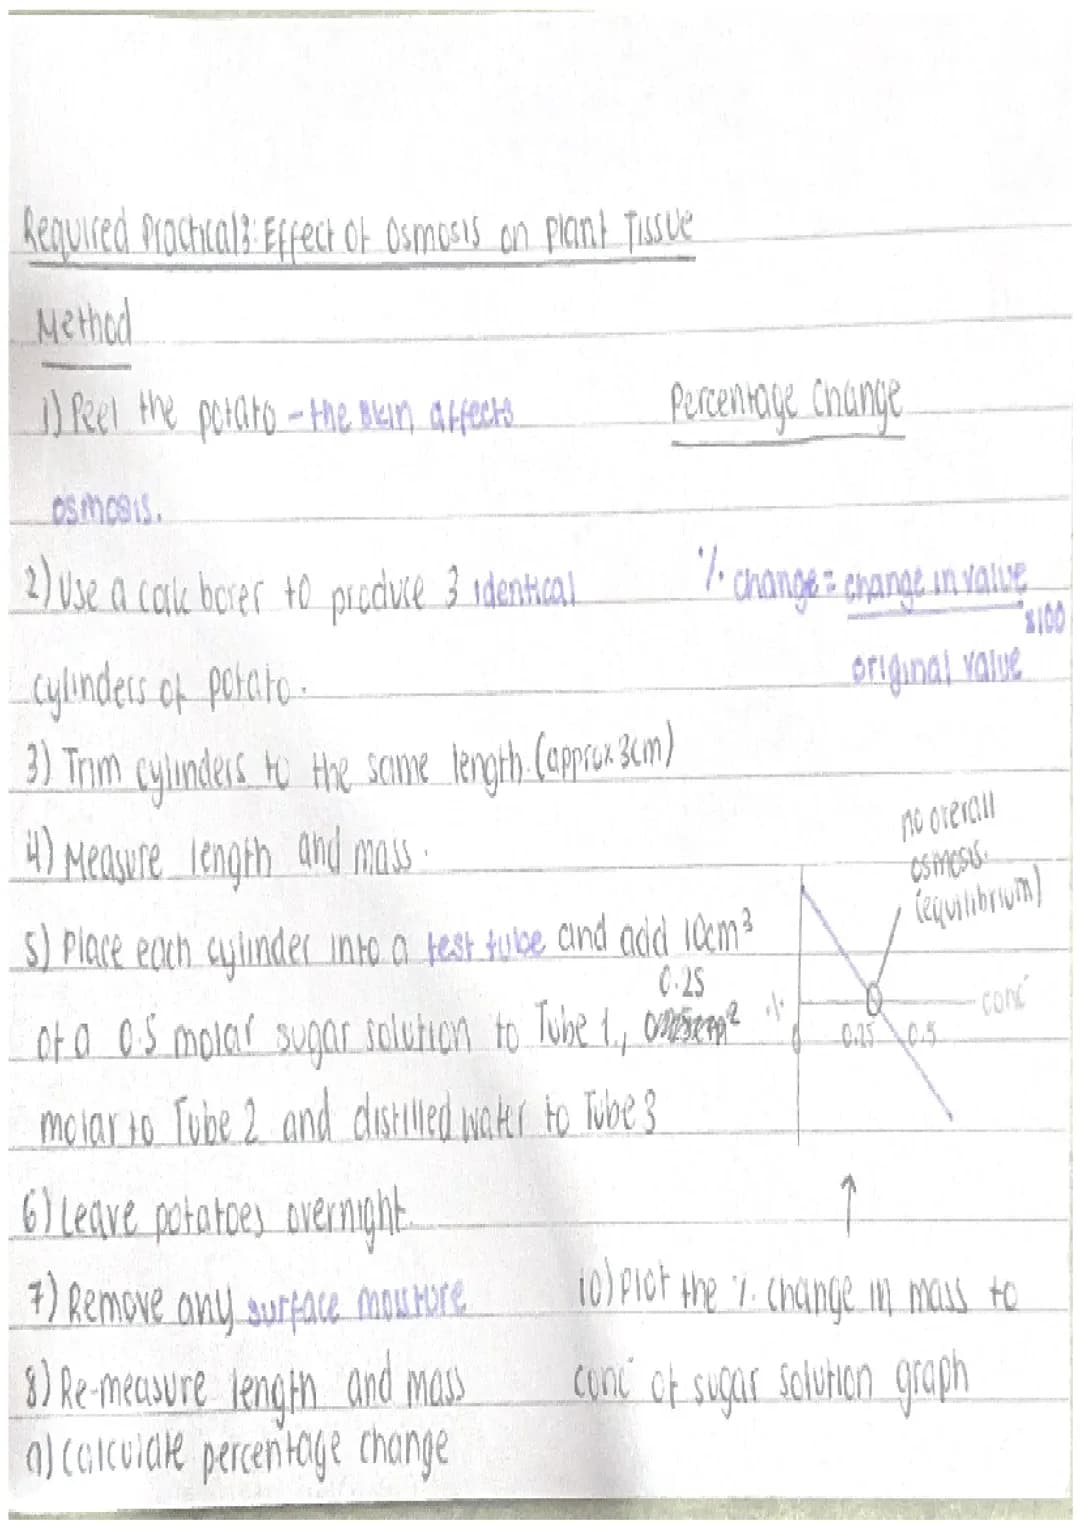 Required Practical 3: Effect of Osmosis on Plant Tissue
Method
1) Peel the potato - the skin affects
osmosis.
2) Use a cork borer to produce 3 identical
cylinders of potato.
3) Trim cylinders to the same length. (approx 3cm)
4) Measure length and mass.
5) Place each cylinder into a test tube and add 10cm³
0.25
of a 0.5 molar sugar solution to Tube 1,
molar to Tube 2 and distilled water to Tube 3
6) Leave potatoes overnight.
7) Remove any surface moisture
8) Re-measure length and mass
9) Calculate percentage change
Percentage Change
% change = change in value
x100
original value
no overall
osmosis.
(equilibrium)
%
conc
0
0.25 0.5
↑
10) Plot the % change in mass to
conc of sugar solution graph